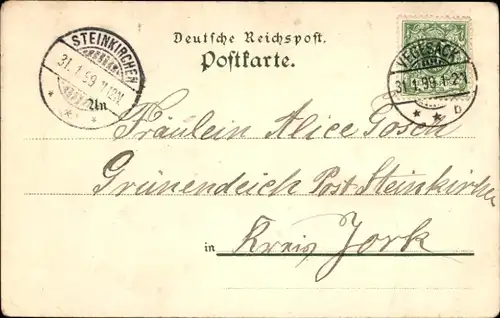 Deutsche Reichspost.
Postkarte.
STEINKIRCHEN
31.1.99.11-12V.
VEGESACK
31.1.99.1-2N.
* * b
An
Fräulein Alice Gosch
Grünendeich Post Steinkirchen
in Kreis Jork